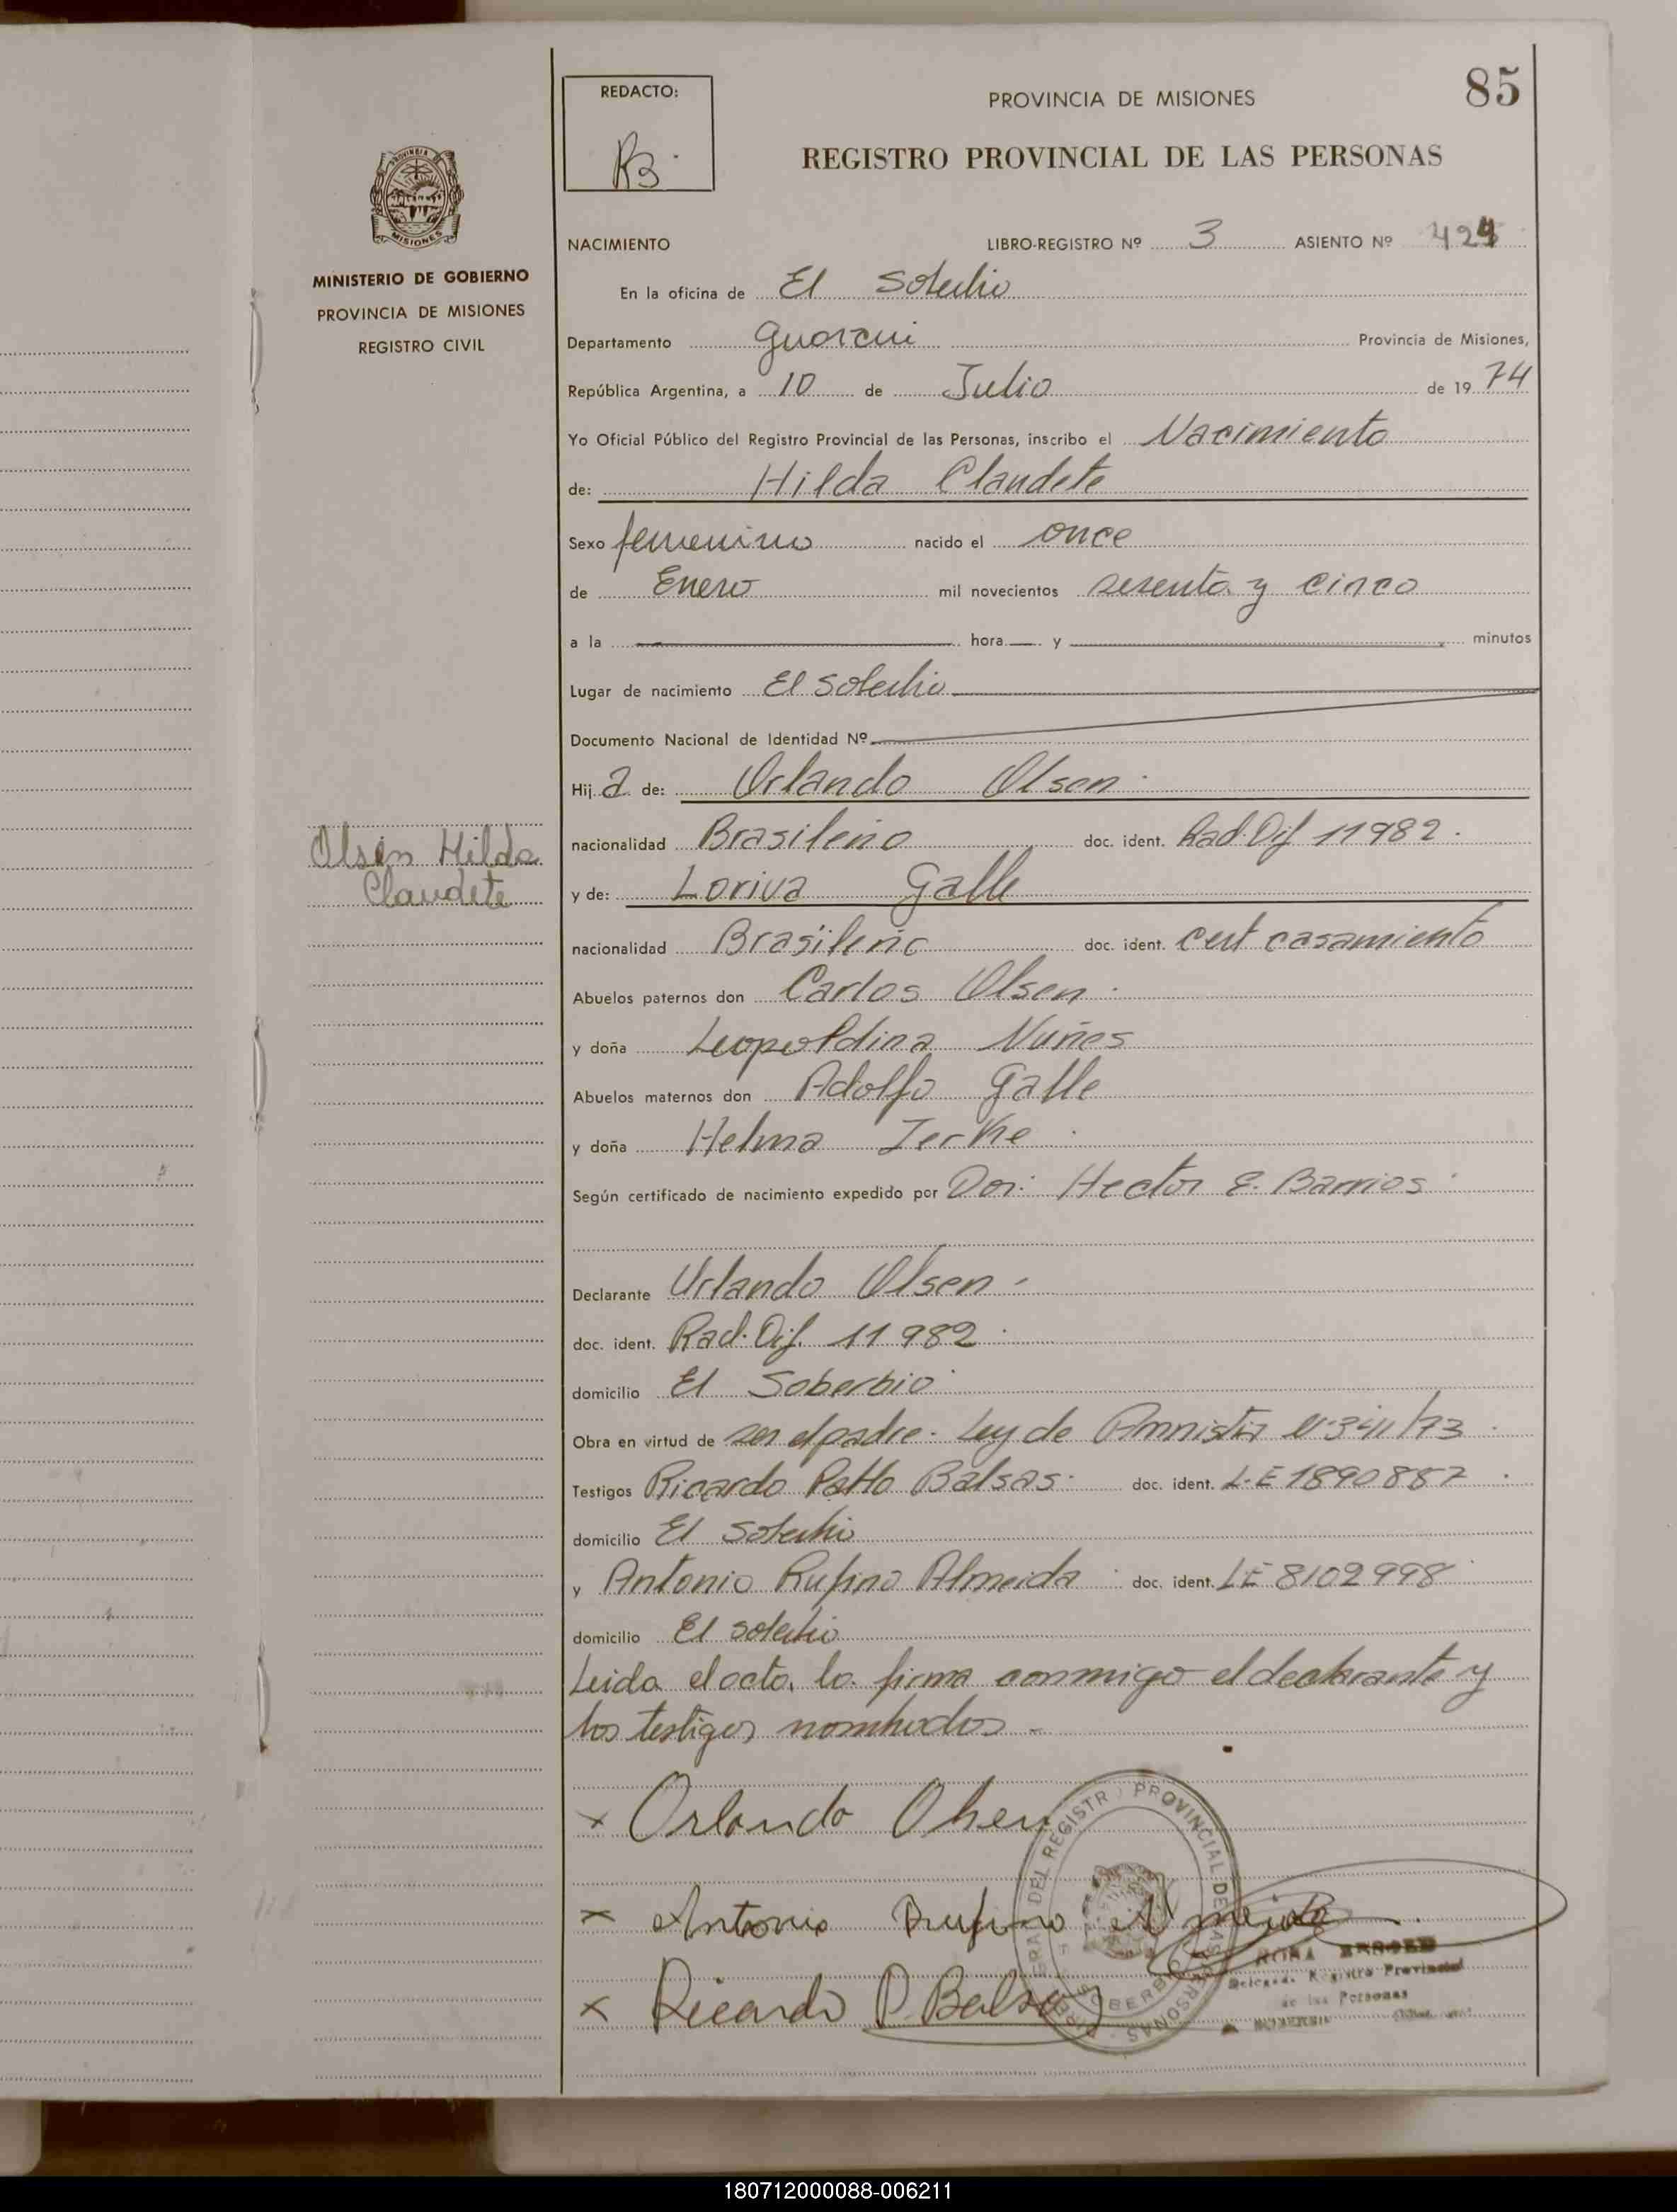 85
REDACTO:
RB.
PROVINCIA DE MISIONES
REGISTRO PROVINCIAL DE LAS PERSONAS
MINISTERIO DE GOBIERNO
PROVINCIA DE MISIONES
REGISTRO CIVIL
NACIMIENTO LIBRO-REGISTRO Nº 3 ASIENTO Nº 424
En la oficina de El Soberbio
Departamento Guarani Provincia de Misiones,
República Argentina, a 10 de Julio de 19 74
Yo Oficial Público del Registro Provincial de las Personas, inscribo el Nacimiento
de: Hilda Claudete
Sexo femenino nacido el once
de Enero mil novecientos sesenta y cinco
a la hora y minutos
Lugar de nacimiento El Soberbio
Documento Nacional de Identidad Nº
Hij a de: Orlando Olsen.
nacionalidad Brasileño doc. ident. Rad. Dif 11982.
Olsen Hilda
Claudete
y de: Loriva Galle
nacionalidad Brasileño doc. ident. cert casamiento
Abuelos paternos don Carlos Olsen.
y doña Leopoldina Nuñes
Abuelos maternos don Adolfo Galle
y doña Helma Jerke.
Según certificado de nacimiento expedido por Dor. Hector E. Barrios.
Declarante Orlando Olsen.
doc. ident. Rad. Dif. 11982.
domicilio El Soberbio.
Obra en virtud de ser el padre. Ley de Amnistia
Testigos Ricardo Patto Balsas. doc. ident. L.E 1890887.
domicilio El Soberbio
y Antonio Rufino Almeida. doc. ident. LE 8102998.
domicilio El Soberbio
Leida el acta, la firma conmigo el declarante y
los testigos nombrados.-
x Orlando Olsen
x Antonio Rufino Almeida
x Ricardo P. Balsas
PROVINCIAL DE LAS PERSONAS
Registro Provincial
de las Personas
180712000088-006211